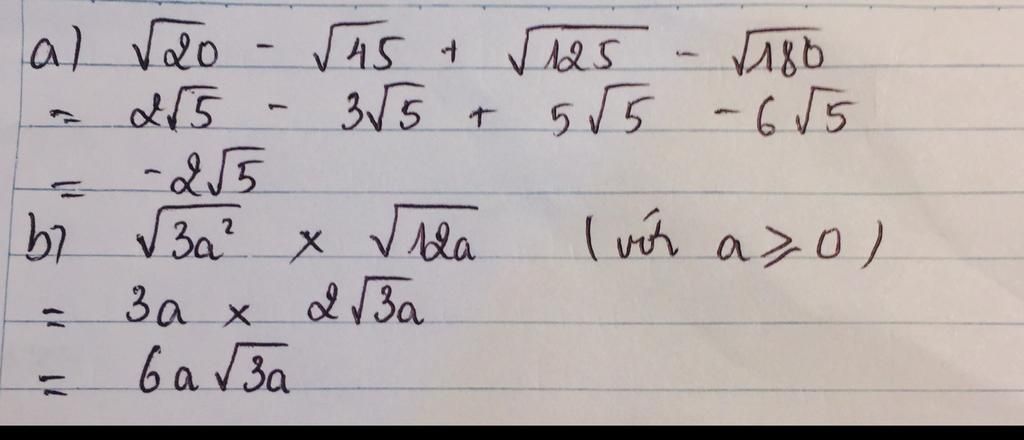 a) √20 - √45 + √125 - √180
= 2√5 - 3√5 + 5√5 - 6√5
= -2√5
b) √3a² × √12a (với a ≥ 0)
= 3a × 2√3a
= 6a√3a